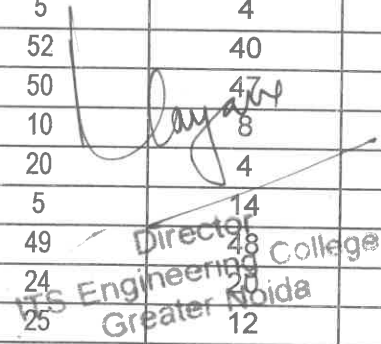 5 4
52 40
50 47
10 8
20 4
5 14
49 48
24 20
25 12
Director
ITS Engineering College
Greater Noida